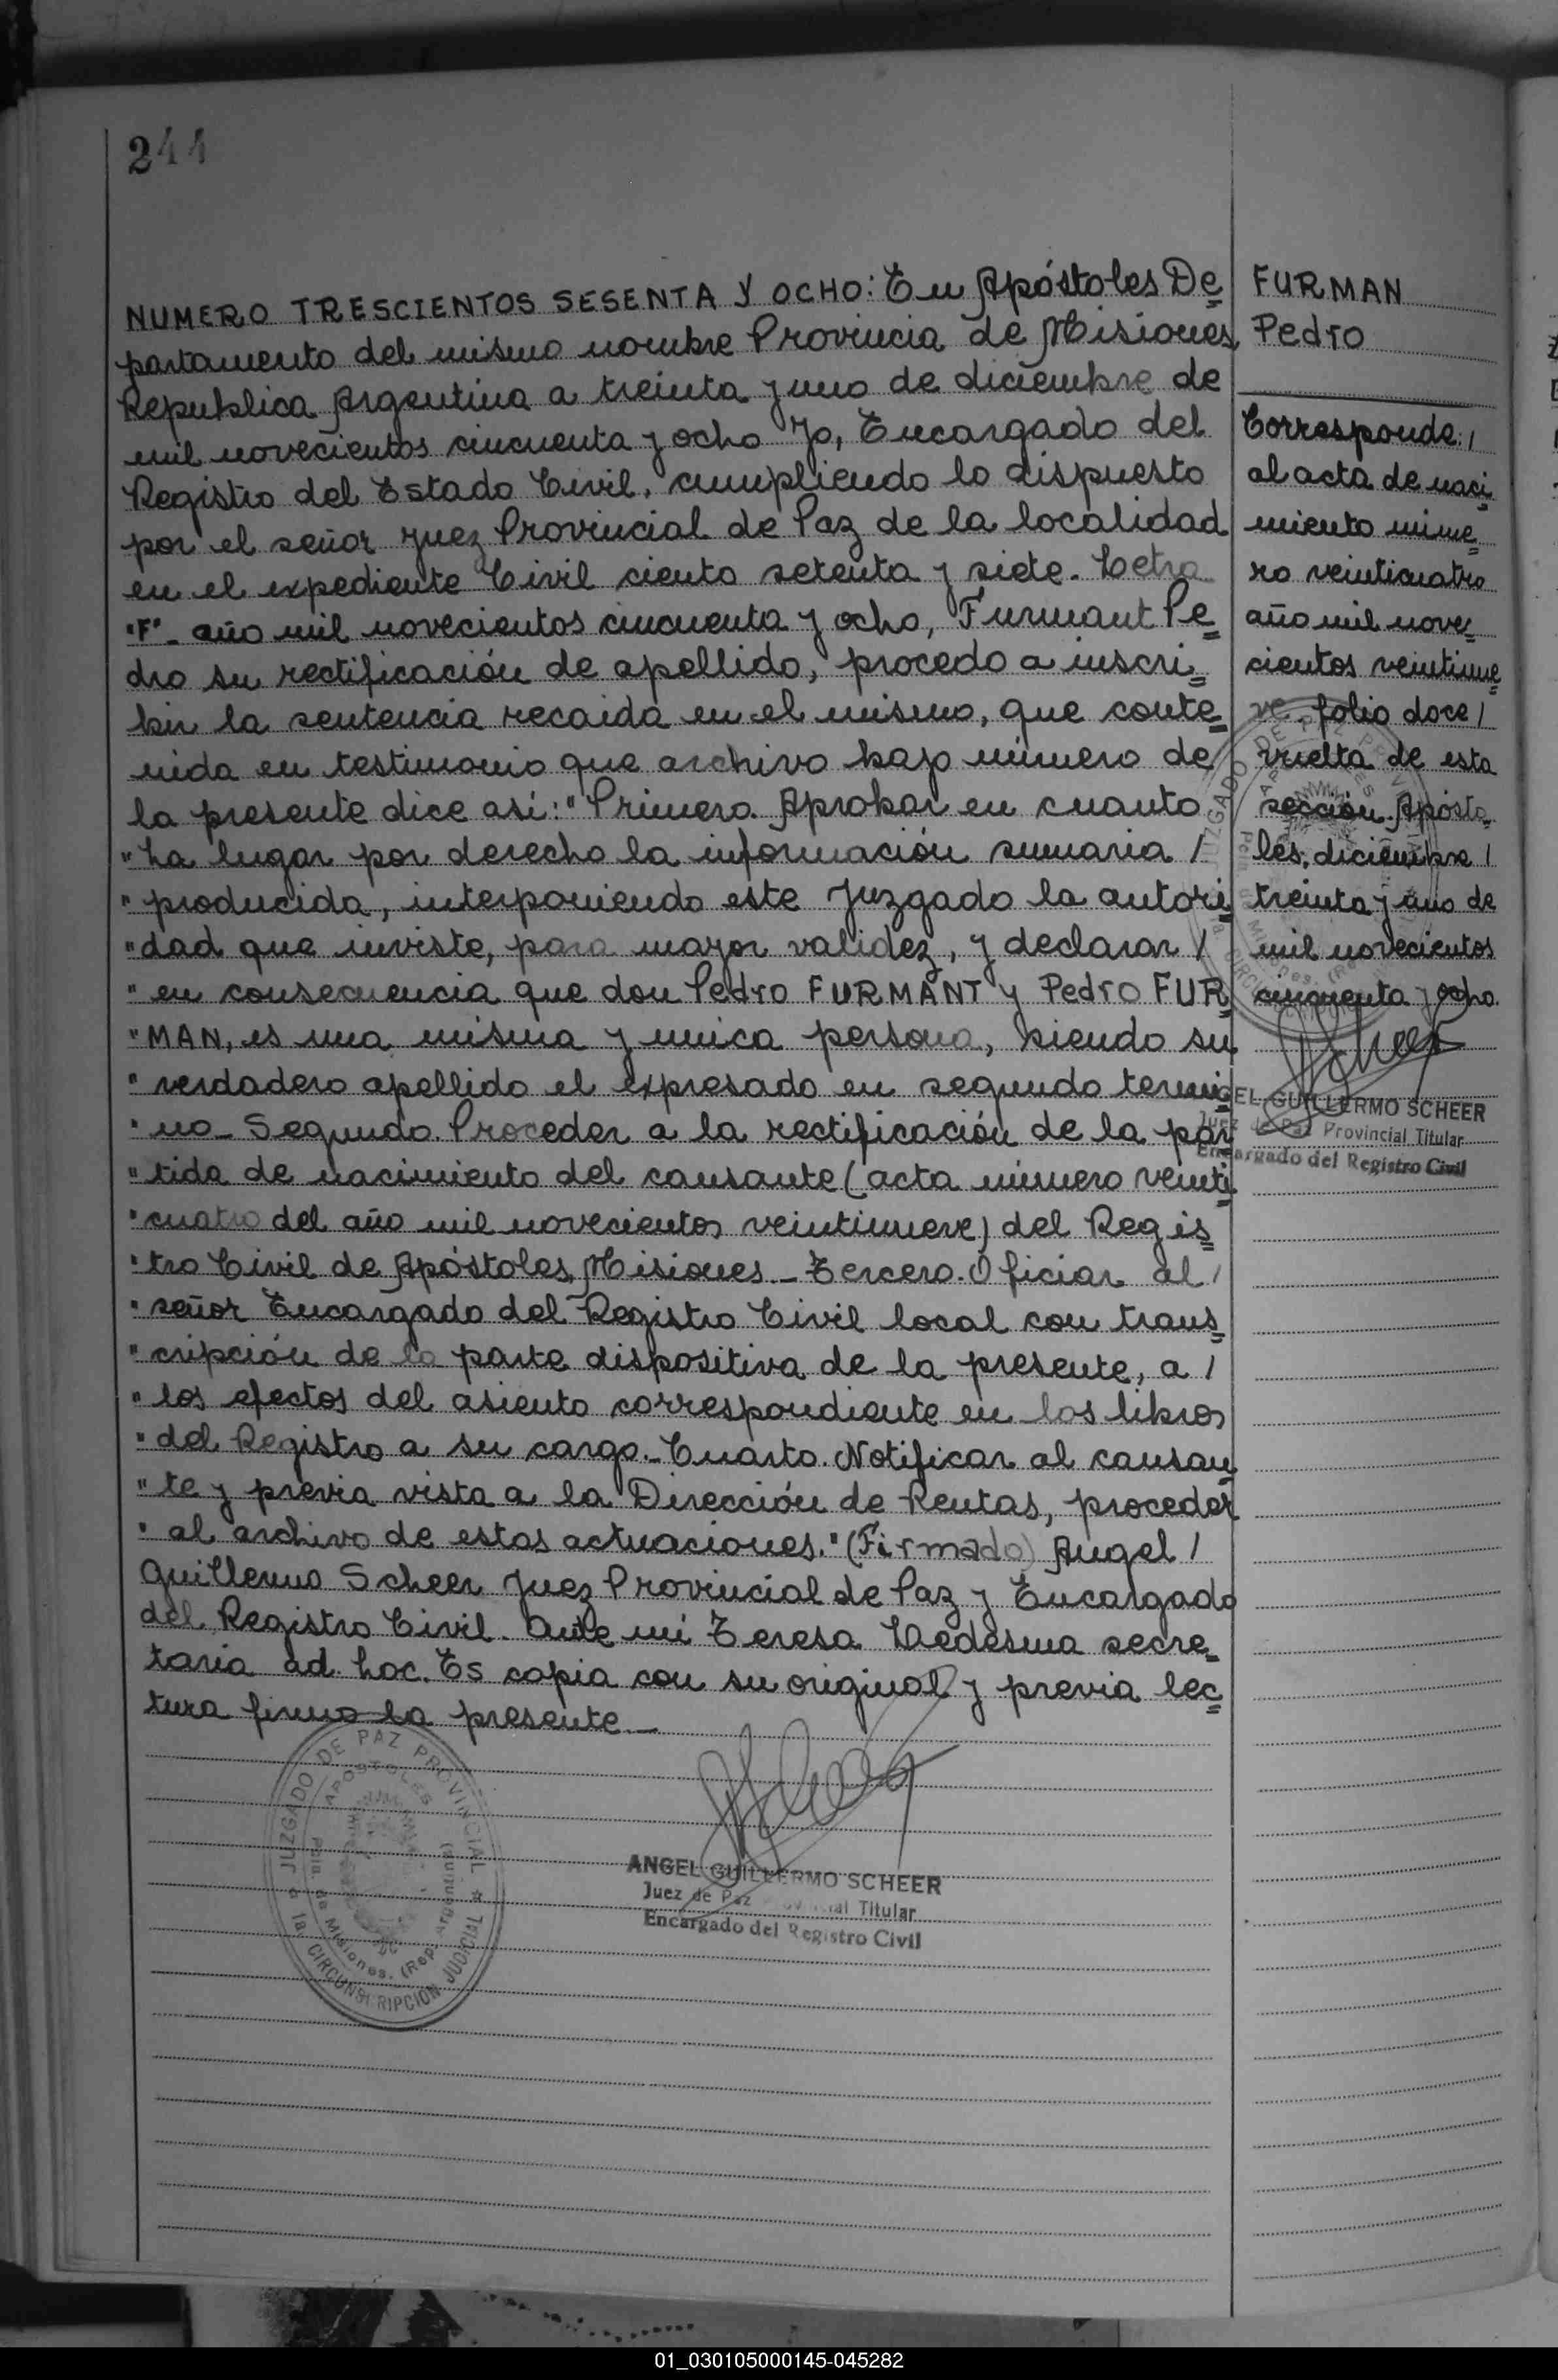 244
NUMERO TRESCIENTOS SESENTA Y OCHO: En Apóstoles De=
partamento del mismo nombre Provincia de Misiones
Republica Argentina a treinta y uno de diciembre de
mil novecientos cincuenta y ocho Yo, Encargado del
Registro del Estado Civil, cumpliendo lo dispuesto
por el señor Juez Provincial de Paz de la localidad
en el expediente Civil ciento setenta y siete. Letra
"F"- año mil novecientos cincuenta y ocho, Furmant Pe=
dro su rectificación de apellido, procedo a inscri=
bir la sentencia recaida en el mismo, que conte=
nida en testimonio que archivo bajo número de
la presente dice así: "Primero. Aprobar en cuanto
"ha lugar por derecho la información sumaria /
"producida, interponiendo este Juzgado la autori=
"dad que inviste, para mayor validez, y declarar /
"en consecuencia que don Pedro FURMANT y Pedro FUR=
"MAN, es una misma y unica persona, siendo su
"verdadero apellido el expresado en segundo termi=
"no- Segundo. Proceder a la rectificación de la par=
"tida de nacimiento del causante (acta número veinti=
"cuatro del año mil novecientos veintinueve) del Regis=
"tro Civil de Apóstoles, Misiones.- Tercero. Oficiar al /
"señor Encargado del Registro Civil local con trans=
"cripción de la parte dispositiva de la presente, a /
"los efectos del asiento correspondiente en los libros
"del Registro a su cargo.- Cuarto. Notificar al causan=
"te y previa vista a la Dirección de Rentas, proceder
"al archivo de estas actuaciones." (Firmado) Angel /
Guillermo Scheer Juez Provincial de Paz y Encargado
del Registro Civil. Ante mí Teresa Ledesma secre=
taria ad. hoc. Es copia con su original y previa lec=
tura firmo la presente.-
JUZGADO DE PAZ PROVINCIAL ☆ TRICIAL
APOSTOLES
Pcia. de Misiones. (Rep. Argentina)
la CIRCUNSCRIPCION JUDICIAL
ANGEL GUILLERMO SCHEER
Juez de Paz Provincial Titular
Encargado del Registro Civil
FURMAN
Pedro
Corresponde: /
al acta de naci=
miento núme=
ro veinticuatro
año mil nove=
cientos veintinue=
ve. folio doce /
vuelta de esta
sección. Apósto=
les, diciembre /
treinta y uno de
mil novecientos
cincuenta y ocho.
ANGEL GUILLERMO SCHEER
Juez de Paz Provincial Titular
Encargado del Registro Civil
01_030105000145-045282